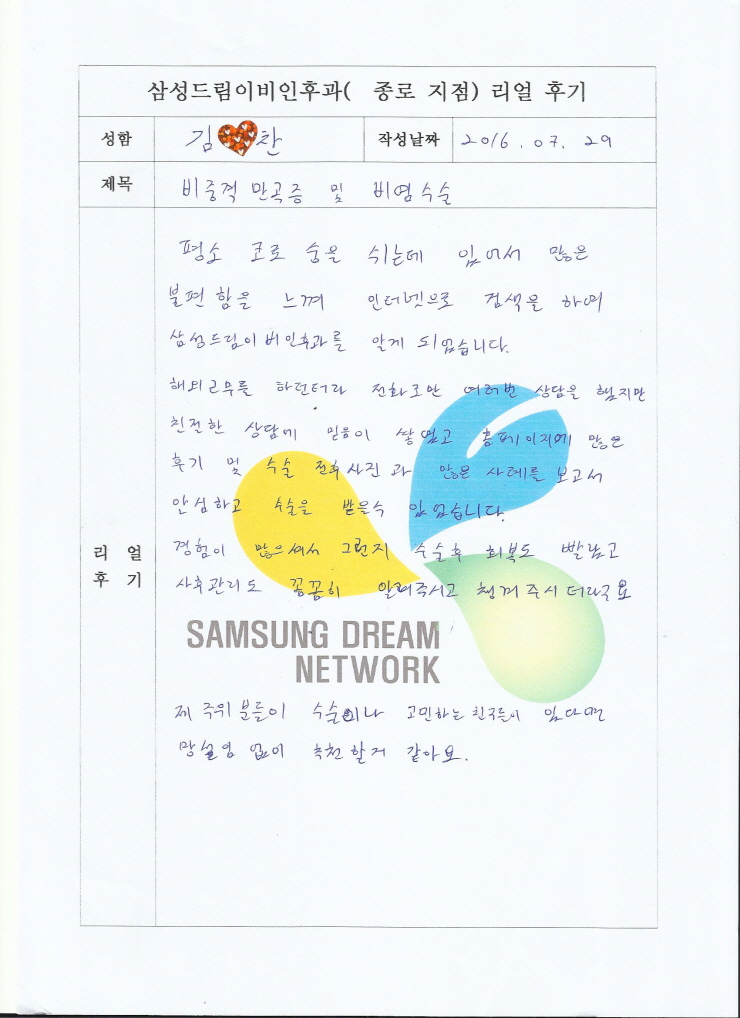 삼성드림이비인후과( 종로 지점) 리얼 후기
성함 김 찬 작성날짜 2016.07.29
제목 비중격 만곡증 및 비염수술
리얼 후기
평소 코로 숨을 쉬는데 있어서 많은
불편함을 느껴 인터넷으로 검색을 하여
삼성드림이비인후과를 알게 되었습니다.
해외근무를 하던터라 전화로만 여러번 상담을 했지만
친절한 상담에 믿음이 쌓였고 홈페이지에 많은
후기 및 수술 전후사진과 많은 사례를 보고서
안심하고 수술을 받을수 있었습니다.
경험이 많으셔서 그런지 수술후 회복도 빨랐고
사후관리도 꼼꼼히 알려주시고 챙겨주시더라구요
SAMSUNG DREAM
NETWORK
제 주위 분들이 수술이나 고민하는 친구들이 있다면
망설임 없이 추천할거 같아요.